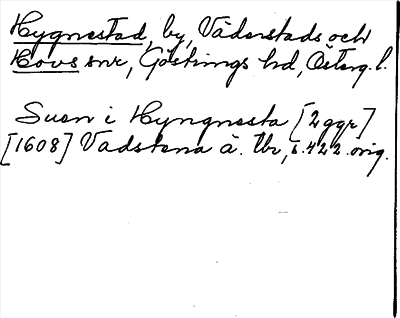 Hygnestad, by, Väderstads och
Hovs snr, Göstrings hd, Österg. l.
Suen i Hyngnesta [2 ggr]
[1608] Vadstena ä. Tb, s. 422. orig.